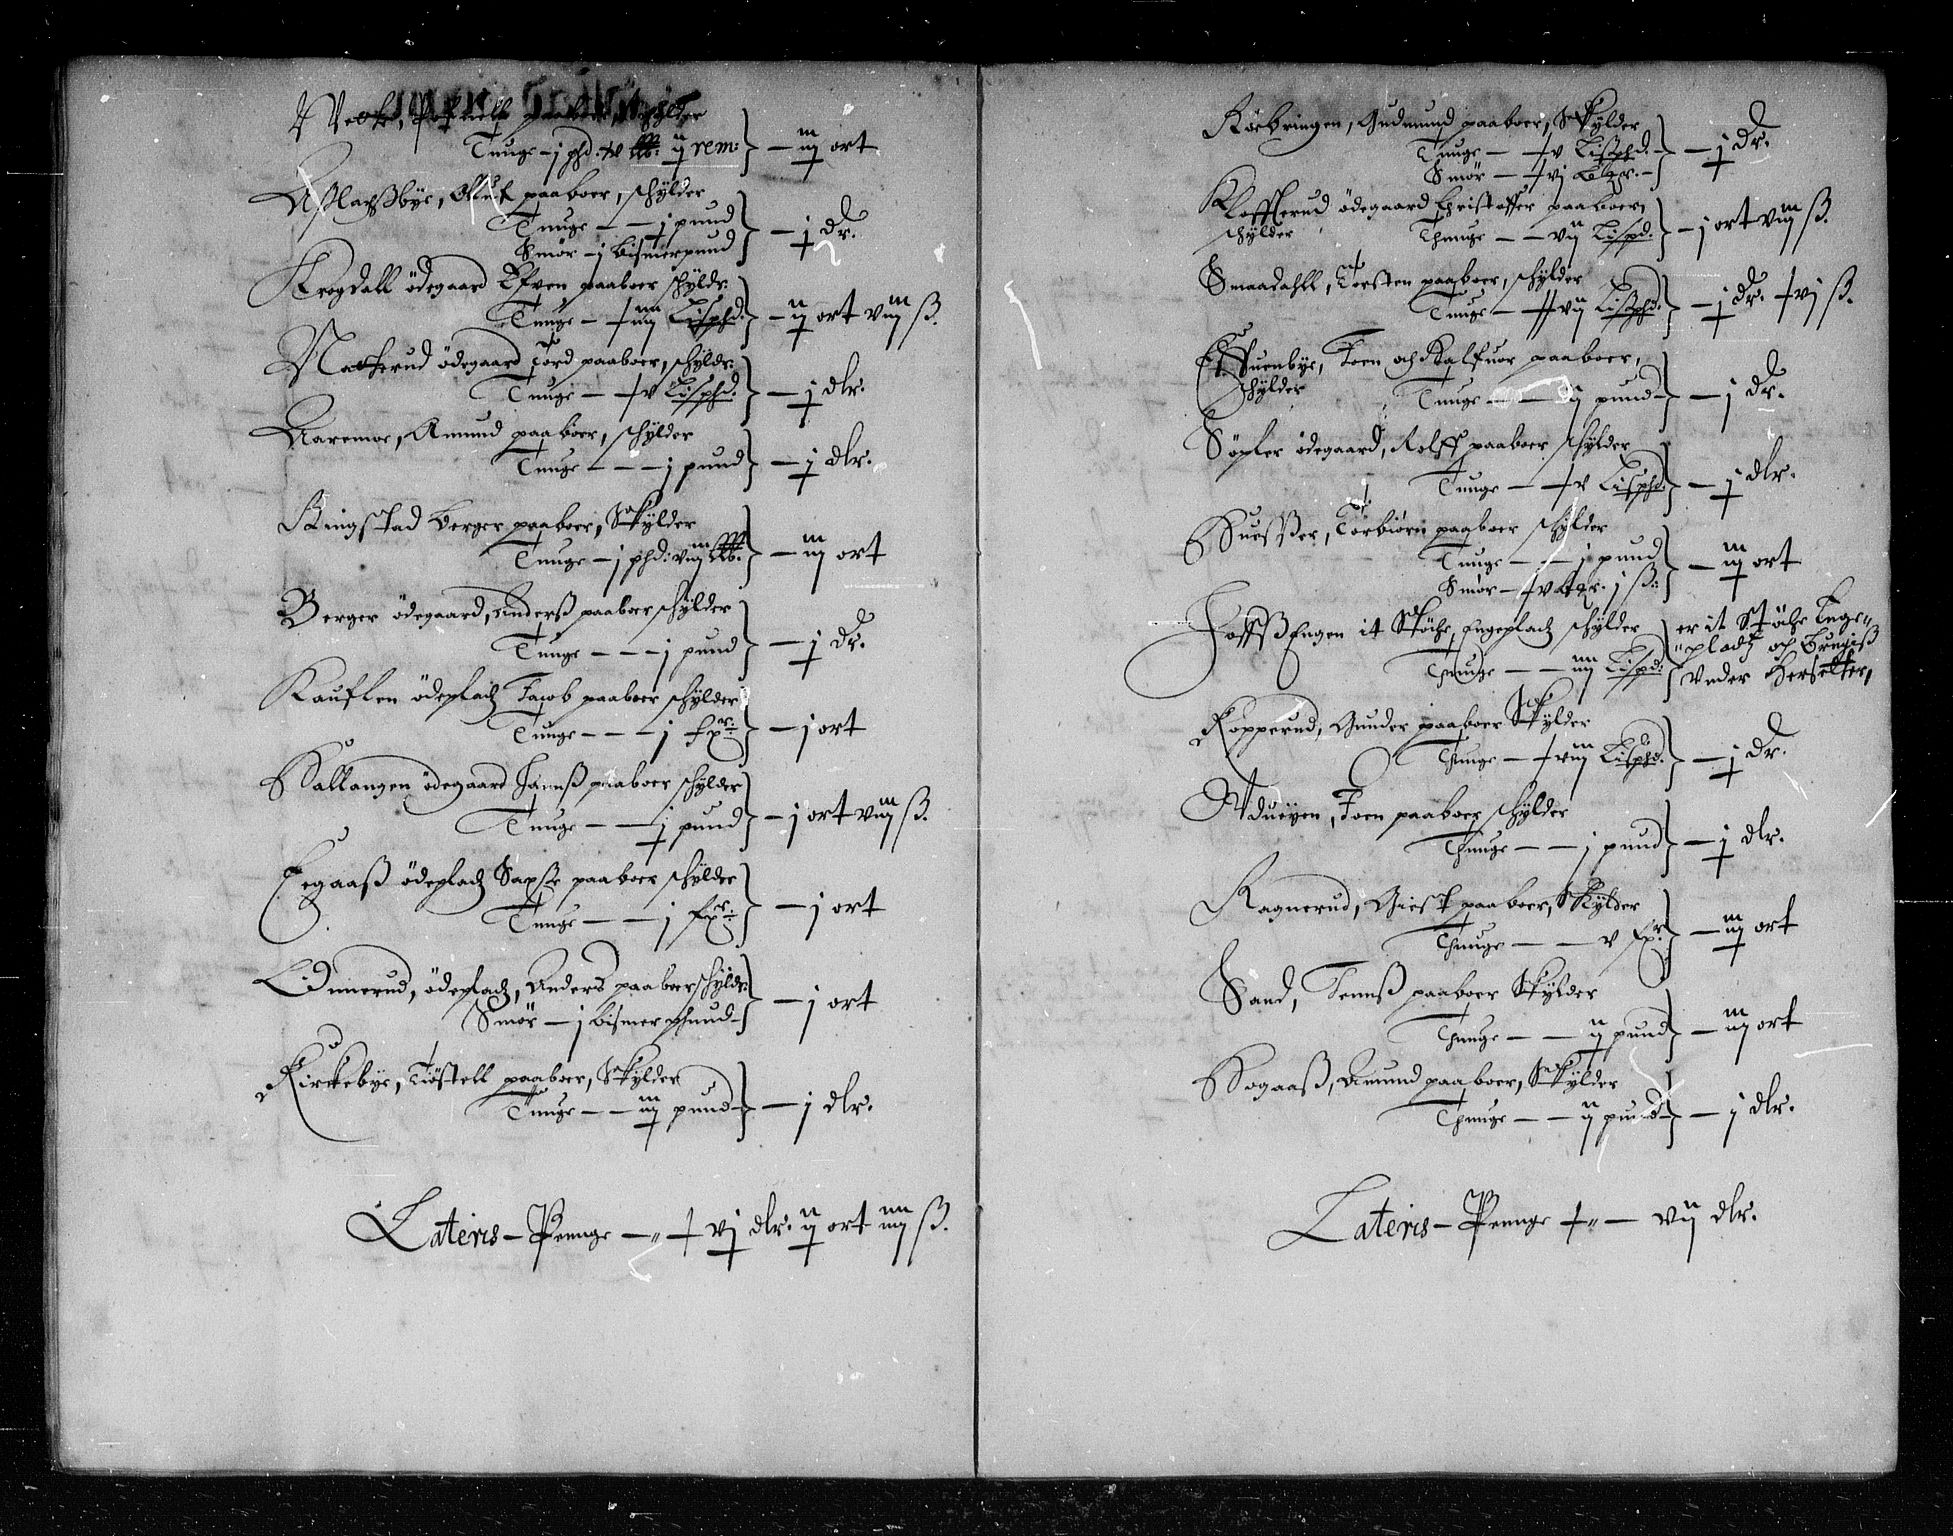 paaboer, schylder
Tunge – j phd: rem: – iij ort
Aslachsbye, Oluf paaboer, schylder
Tunge – – j pund
Smör – j bismerpund – j dr.
Krogdall ödegaard Efven paaboer schyldr:
Tunge – iiij Lispd. – ij ort viij ß.
Nattserud ödegaard Tord paaboer, schyldr:
Tunge – – v Lispd. – j dlr.
Aaremoe, Amund paaboer, schylder
Tunge – – – j pund – j dlr.
Ringstad Berger paaboer, Skylder
Tunge – j phd: viij – iij ort
Berger ödegaard, Anderß paaboer schylder
Tunge – – – j pund – j dr.
Kauflen ödepladz Jacob paaboer schylder
Tunge – – – j fxr: – j ort
Hallangen ödegaard Hanß paaboer schylder
Tunge – – j pund – j ort viij ß.
Eegaaß ödepladz Saxse paaboer schylder
Tunge – – – j fxr: – j ort
Ödepladz, Anders paaboer schyldr:
Smör – j bismer phund – j ort
Kirckebye, Töstell paaboer, Skylder
Tunge – – iij pund – j dlr.
Lateris – Penge – „ – vj dlr. ij ort iiij ß.
Gudmund paaboer, Skylder
Tunge – – v Lisphd. –
Smör – vj – j dr.
Kloffserud ödegaard Christoffer paaboer
schylder Thunge – – vij Lispd. – j ort viij ß.
Smaadahll, Torsten paaboer, schylder
Tunge – vij Lisphd. – j dr. vj ß.
Joen och Halfuor paaboer,
schylder Tunge – – ij pund – j dr.
Söpler ödegaard, Rolff paaboer schylder
Tunge – – v Lisphd. – j dlr.
Torbiörn paaboer schylder
Tunge – – j pund
Smör – – iij ort
Foffß Engen it Stöche, Engepladz schylder er it Stöche Enge„
Thunge – – iiij Lispd: „pladz och Brugiß
Vnder Herseter,
Kopperud, Gunder paaboer Skylder
Thunge – viij Lisphd. – j dr.
Joen paaboer schylder
Thunge – – j pund – j dlr.
Ragnerud, Giest paaboer, Skylder
Thunge – – – v fxr. – iij ort
Sand, Jennß paaboer Skylder
Thunge – – – ij pund – iij ort
Hogaaß, Amund paaboer, Skylder
Thunge – – – ij pund – j dlr.
Lateris – Penge „ – vij dlr.